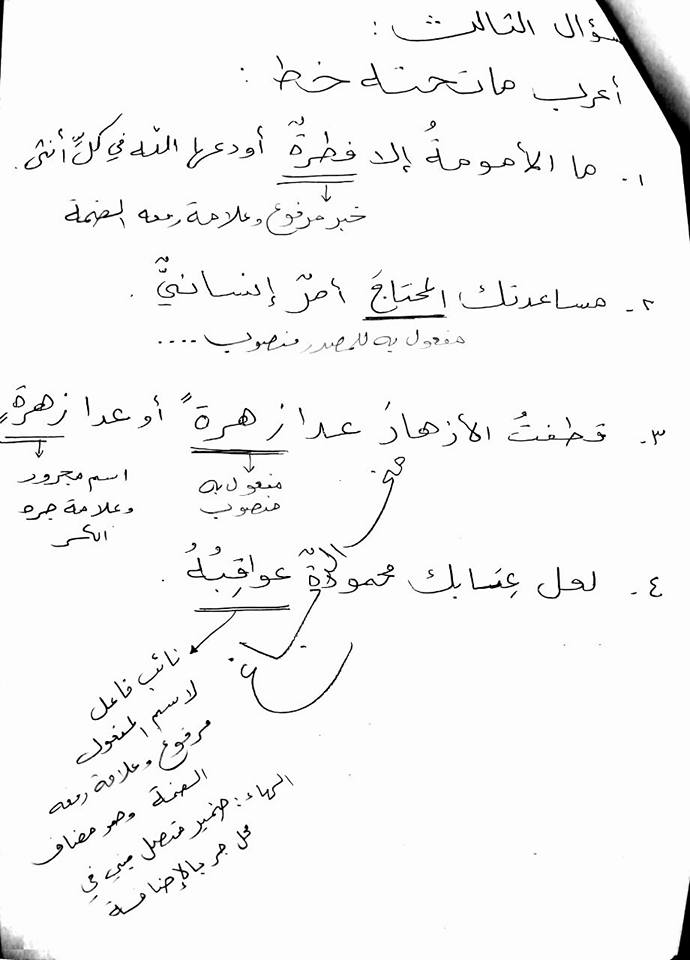 سؤال الثالث :
أعرب ما تحته خط :
١. ما الأمومةُ إلا فطرةٌ أودعها الله في كلِّ أنثى .
خبر مرفوع وعلامة رفعه الضمة
٢. مساعدتك المحتاجَ أمرٌ إنسانيٌّ .
مفعول به للمصدر منصوب ....
٣. قطفتُ الأزهارَ عدا زهرةً أو عدا زهرةٍ
مفعول به
منصوب
اسم مجرور
وعلامة جره
الكسر
٤. لعل عتابك محمودةٌ عواقِبُهُ .
نائب فاعل
لاسم المفعول
مرفوع وعلامة رفعه
الضمة وهو مضاف
الهاء : ضمير متصل مبني في
محل جر بالإضافة